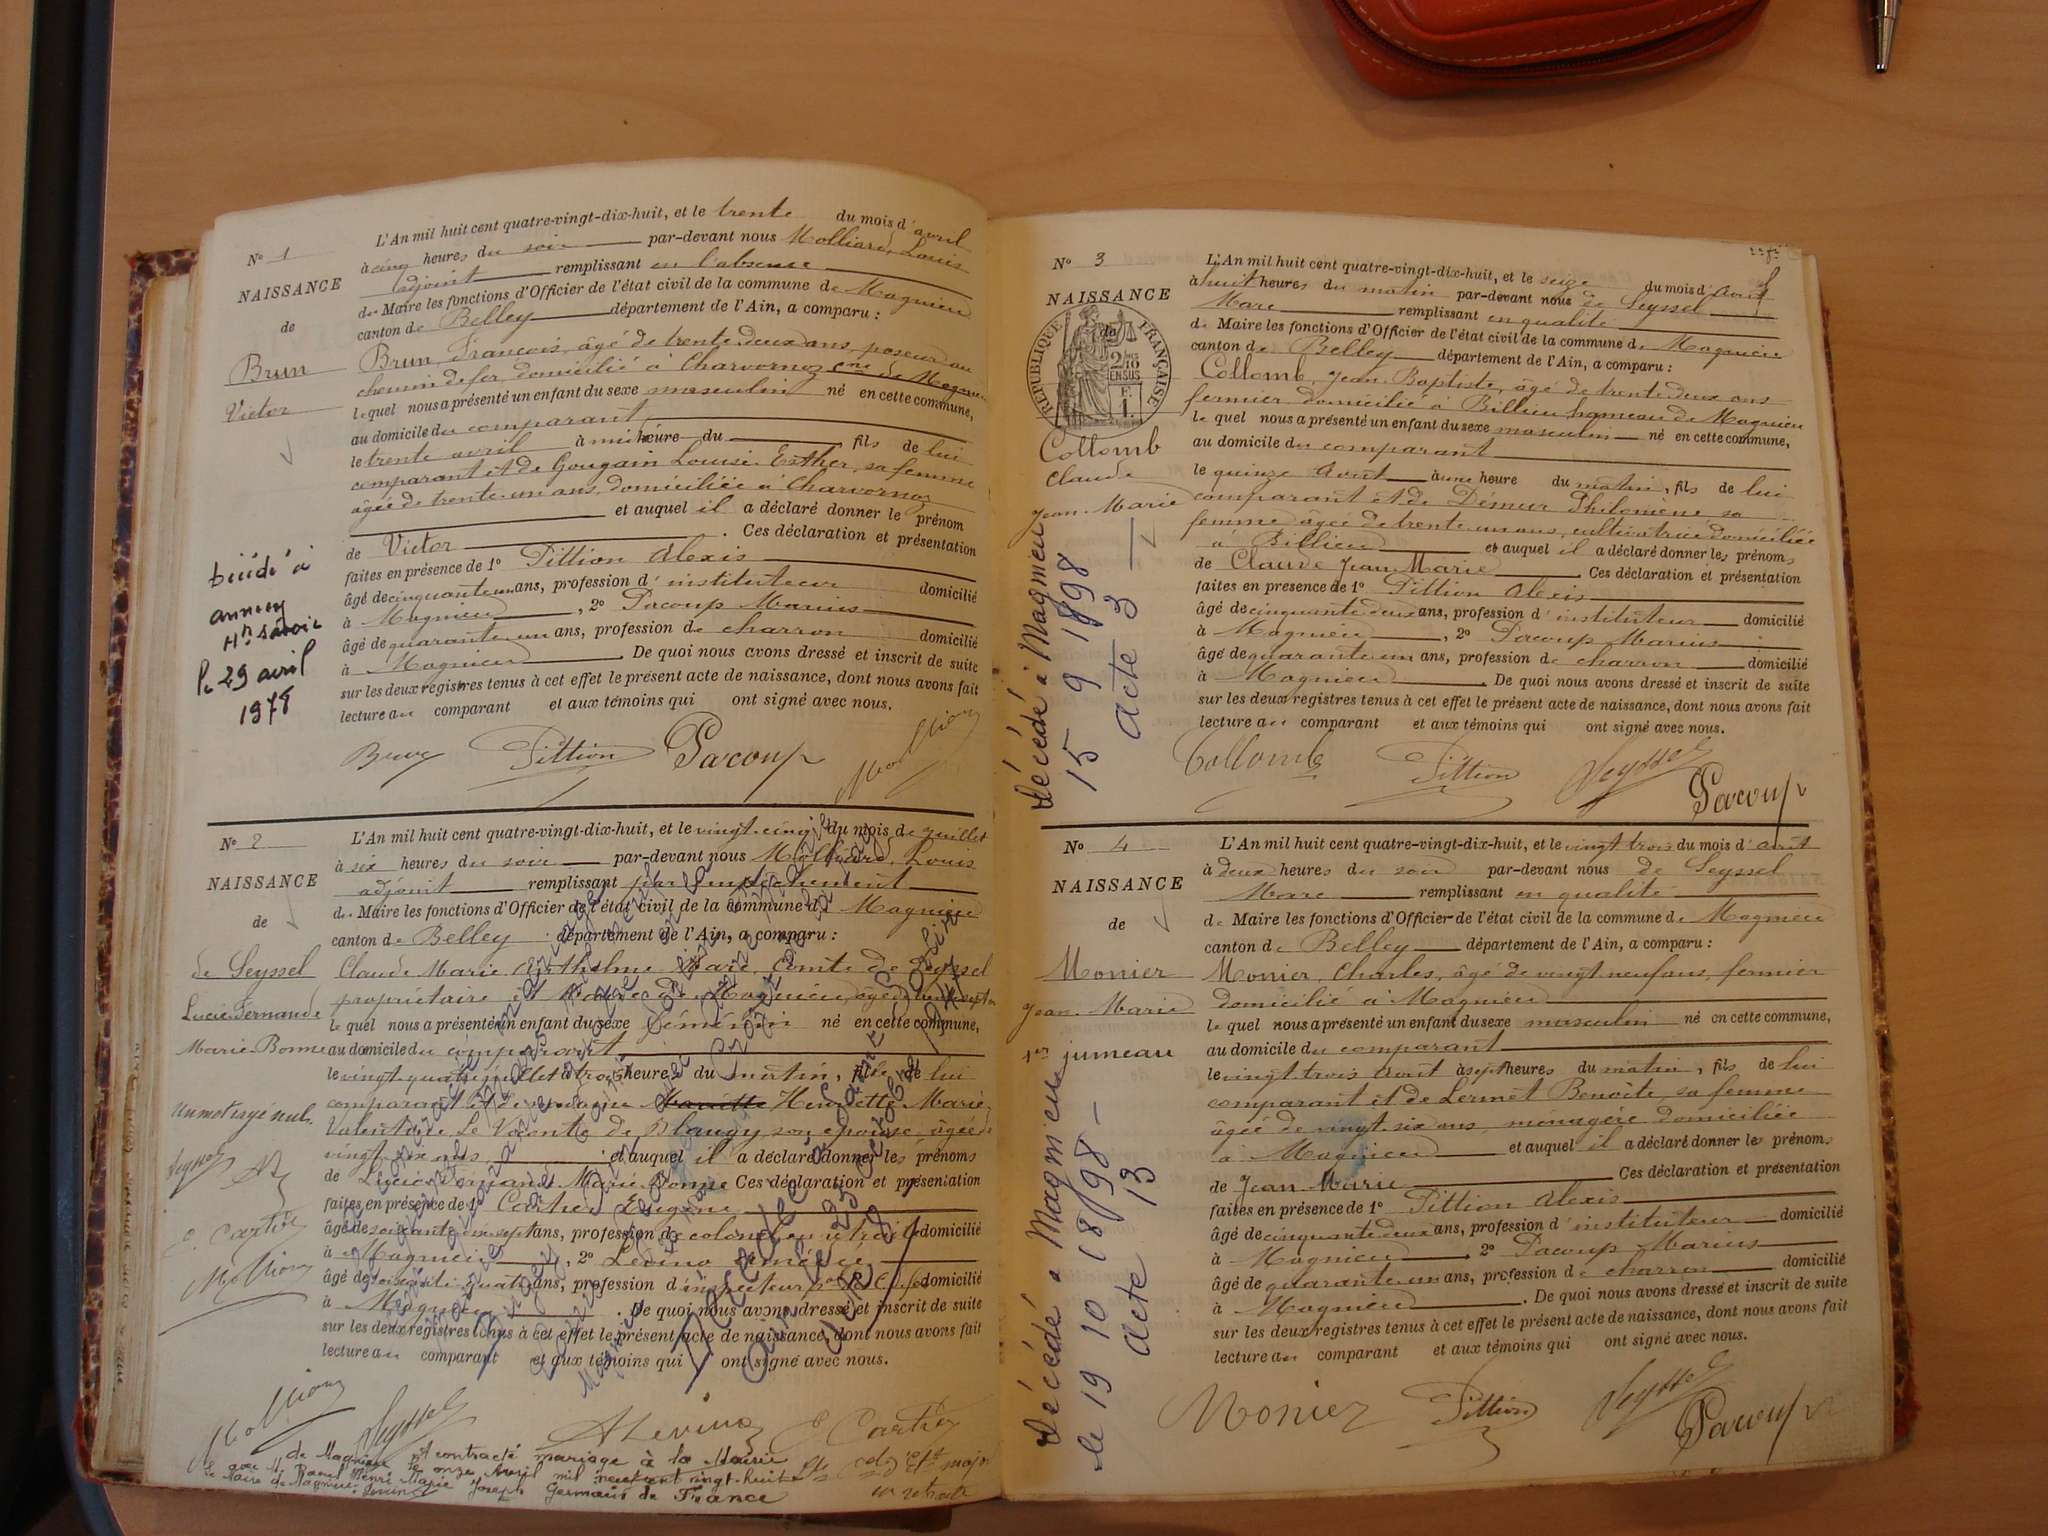 N° 1
NAISSANCE
de
Brun
Victor
L'An mil huit cent quatre-vingt-dix-huit, et le trente du mois d'avril
à cinq heures du soir par-devant nous Molliard, Louis
adjoint remplissant en l'absence
du Maire les fonctions d'Officier de l'état civil de la commune de Magnieu
canton de Belley département de l'Ain, a comparu :
Brun, François, âgé de trente deux ans, poseur au
chemin de fer, domicilié à Charvornoz cne de Magnieu
lequel nous a présenté un enfant du sexe masculin né en cette commune,
au domicile du comparant
le trente avril à midi heure du fils de lui
comparant et de Gougain Louise Esther, sa femme
âgée de trente-un ans, domiciliée à Charvornoz
et auquel il a déclaré donner le prénom
de Victor . Ces déclaration et présentation
faites en présence de 1° Pittion Alexis
âgé de cinquante un ans, profession d'instituteur domicilié
à Magnieu , 2° Pacoup Marius
âgé de quarante un ans, profession de charron domicilié
à Magnieu . De quoi nous avons dressé et inscrit de suite
sur les deux registres tenus à cet effet le présent acte de naissance, dont nous avons fait
lecture au comparant et aux témoins qui ont signé avec nous.
décédé à
annecy
Hte savoie
le 29 avril
1978
Brun Pittion Pacoup Molliard
N° 2
NAISSANCE
de
de Seyssel
Lucie Fernande
Marie-Bonne
Un mot rayé nul.
Seyssel AL
E. Cartier
Molliard
L'An mil huit cent quatre-vingt-dix-huit, et le vingt-cinq du mois de juillet
à six heures du soir par-devant nous Molliard, Louis
adjoint remplissant par empêchement
du Maire les fonctions d'Officier de l'état civil de la commune de Magnieu
canton de Belley département de l'Ain, a comparu :
Claude Marie Marc, Comte de Seyssel
propriétaire et Maire de Magnieu, âgé de
lequel nous a présenté un enfant du sexe féminin né en cette commune,
au domicile du comparant
le vingt-quatre juillet à trois heure du matin, fille de lui
comparant et de Henriette Marie
Valentine Le Vicomte de Blangy son épouse, âgée de
vingt-six ans et auquel il a déclaré donner les prénoms
de Lucie Fernande Marie-Bonne Ces déclaration et présentation
faites en présence de 1° Cartier Eugène
âgé de soixante-sept ans, profession de colonel en retraite domicilié
à Magnieu , 2° Levino
âgé de quatre ans, profession d'inspecteur domicilié
à Magnieu . De quoi nous avons dressé et inscrit de suite
sur les deux registres tenus à cet effet le présent acte de naissance, dont nous avons fait
lecture au comparant et aux témoins qui ont signé avec nous.
Molliard Seyssel ALevino E Cartier
en retraite
A contracté mariage à la Mairie
de Magnieu le onze Avril mil neuf cent vingt-huit
avec M. Raoul Henri Marie Joseph Germain de France
Le Maire de Magnieu
N° 3
NAISSANCE
de
RÉPUBLIQUE FRANÇAISE
2/10 EN SUS
Collomb
Claude
Jean-Marie
Décédé à Magnieu
15 9 1898
acte 3
L'An mil huit cent quatre-vingt-dix-huit, et le seize du mois d'août
à huit heures du matin par-devant nous de Seyssel
Marc remplissant en qualité
de Maire les fonctions d'Officier de l'état civil de la commune de Magnieu
canton de Belley département de l'Ain, a comparu :
Collomb, Jean-Baptiste, âgé de trente deux ans
fermier domicilié à Billieu hameau de Magnieu
lequel nous a présenté un enfant du sexe masculin né en cette commune,
au domicile du comparant
le quinze août à une heure du matin, fils de lui
comparant et de Démur Philomène sa
femme âgée de trente un ans, cultivatrice domiciliée
à Billieu et auquel il a déclaré donner les prénoms
de Claude Jean-Marie . Ces déclaration et présentation
faites en présence de 1° Pittion Alexis
âgé de cinquante deux ans, profession d'instituteur domicilié
à Magnieu , 2° Pacoup Marius
âgé de quarante un ans, profession de charron domicilié
à Magnieu . De quoi nous avons dressé et inscrit de suite
sur les deux registres tenus à cet effet le présent acte de naissance, dont nous avons fait
lecture au comparant et aux témoins qui ont signé avec nous.
Collomb Pittion Seyssel Pacoup
N° 4
NAISSANCE
de
Monier
Jean-Marie
1er jumeau
Décédé à Magnieu
le 19 10 1898
acte 13
L'An mil huit cent quatre-vingt-dix-huit, et le vingt trois du mois d'août
à deux heures du soir par-devant nous de Seyssel
Marc remplissant en qualité
de Maire les fonctions d'Officier de l'état civil de la commune de Magnieu
canton de Belley département de l'Ain, a comparu :
Monier, Charles, âgé de vingt neuf ans, fermier
domicilié à Magnieu
lequel nous a présenté un enfant du sexe masculin né en cette commune,
au domicile du comparant
le vingt trois août à sept heures du matin, fils de lui
comparant et de Lermet Benoîte, sa femme
âgée de vingt six ans, ménagère domiciliée
à Magnieu et auquel il a déclaré donner les prénoms
de Jean Marie Ces déclaration et présentation
faites en présence de 1° Pittion Alexis
âgé de cinquante deux ans, profession d'instituteur domicilié
à Magnieu , 2° Pacoup Marius
âgé de quarante un ans, profession de charron domicilié
à Magnieu . De quoi nous avons dressé et inscrit de suite
sur les deux registres tenus à cet effet le présent acte de naissance, dont nous avons fait
lecture au comparant et aux témoins qui ont signé avec nous.
Monier Pittion Seyssel Pacoup